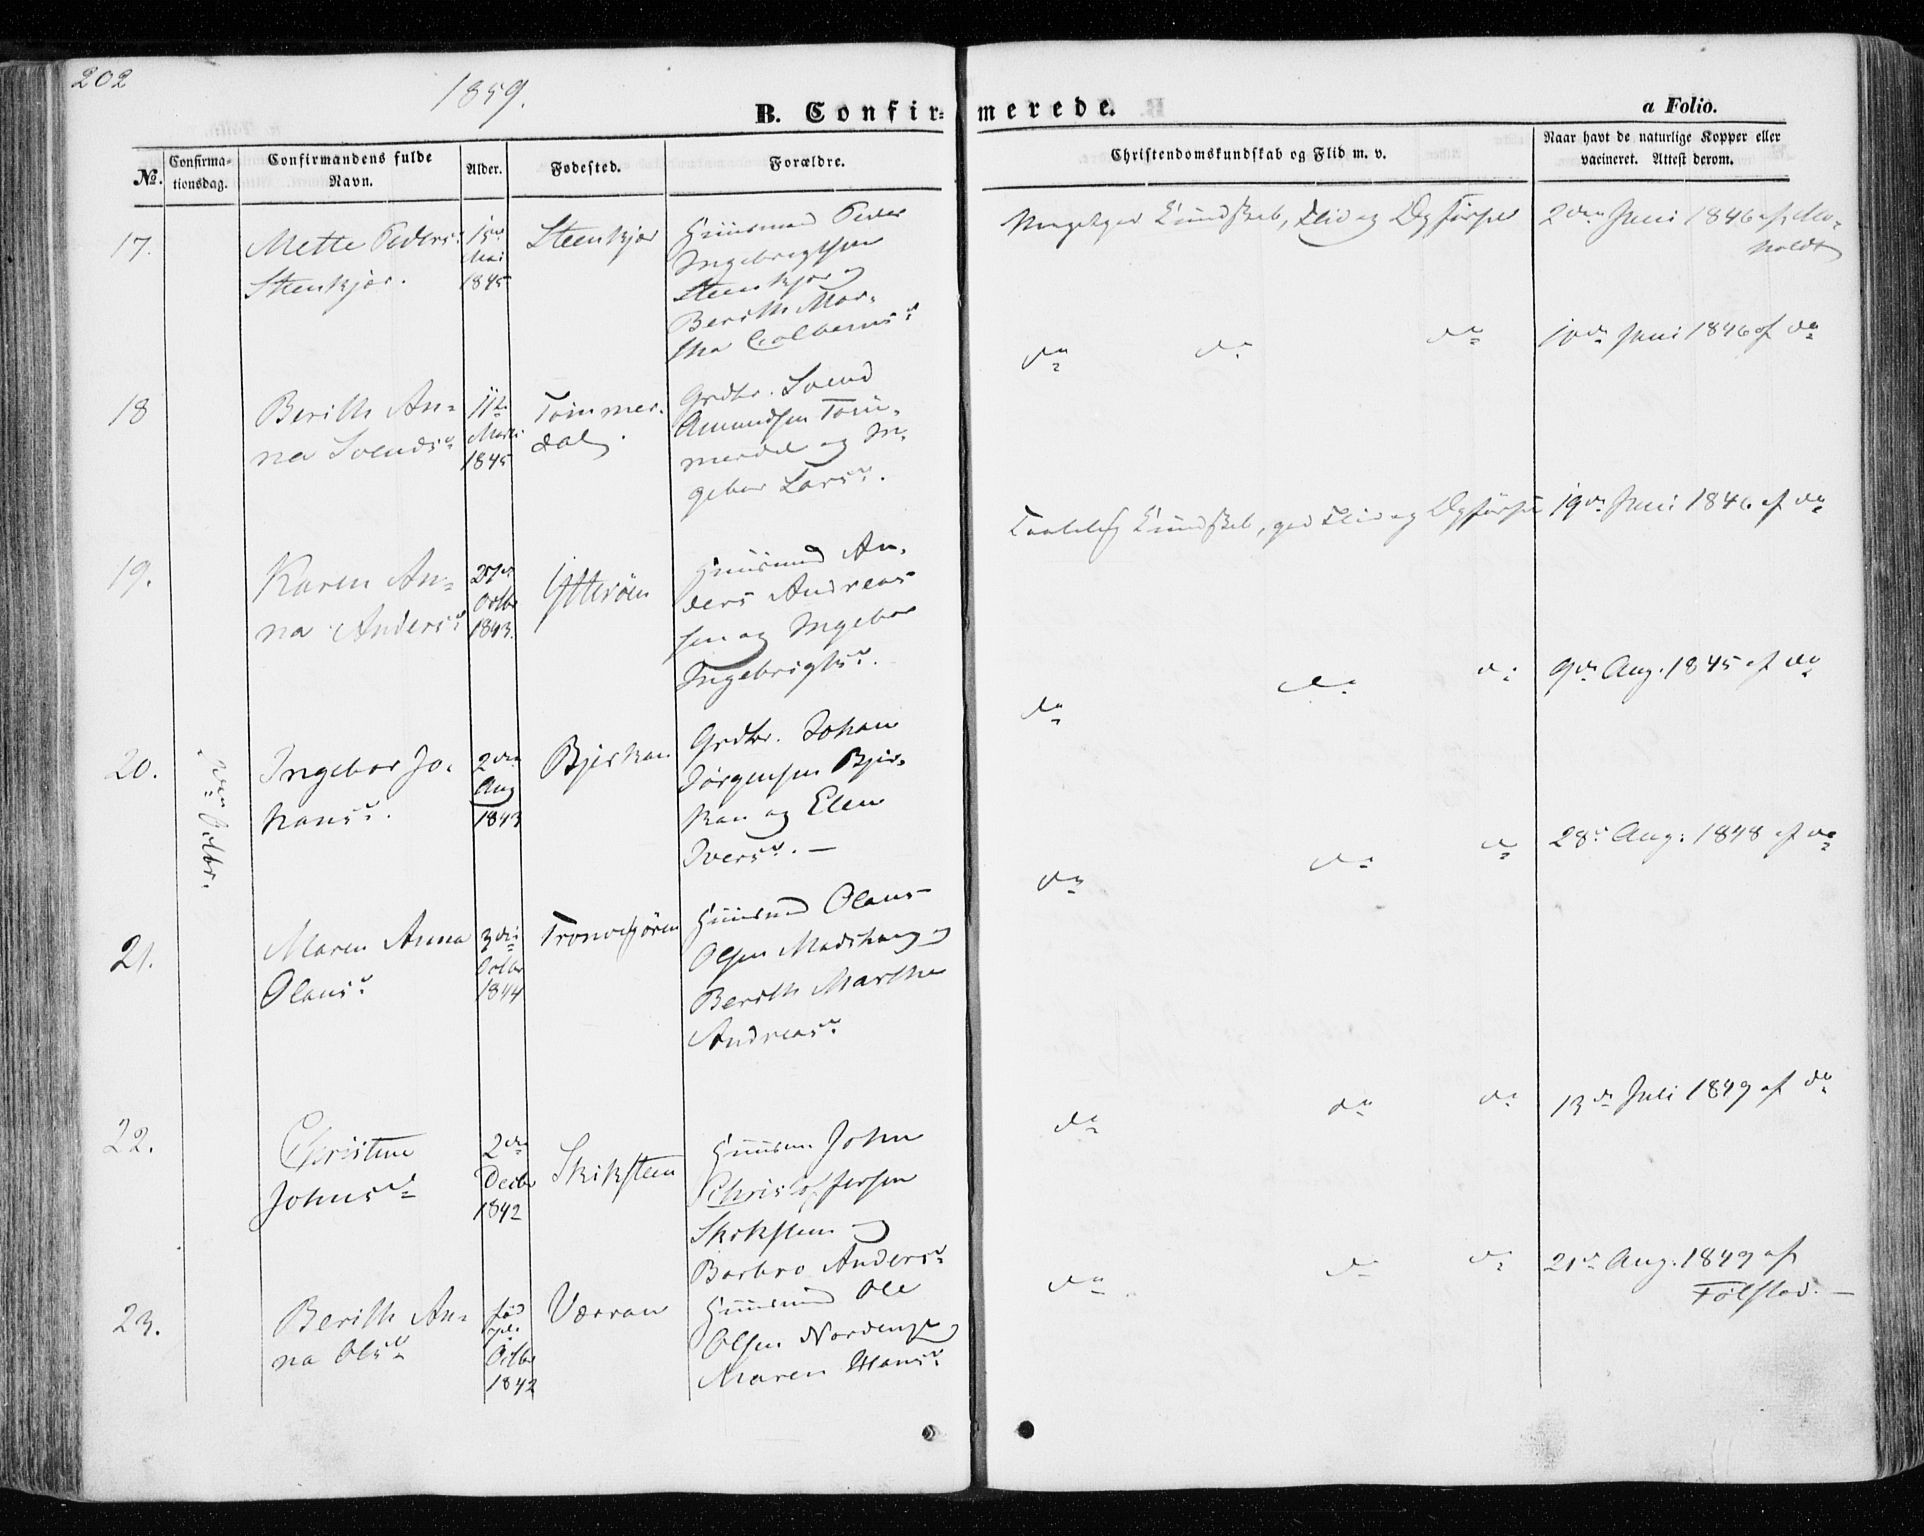 202
1859.
B. Confir-
merede.
a Folio.
No.
Confirma-
tionsdag.
Confirmandens fulde
Navn.
Alder.
Fødested.
Forældre.
Christendomskundskab og Flid m. v.
Naar havt de naturlige Kopper eller
vacineret. Attest derom.
17.
Mette Peders:
Steenkjær.
Mai
1845
Steenkjær
Huusmand Peder
Ingebregtsen
Steenkjær og
Berith Mar-
tha
Kundskab, Flid og Opførsel
2den Juni 1846 af Mo-
holdt
18
Berith An-
na Svendsd.
11te
Marts
1845
Tømmer-
dal
Grdbr. Svend
Amundsen Tøm-
merdal og In-
gebor Larsd.
do
do
do
10de Juni 1846 af do
19.
Karen An-
na Andersd.
27de
Octbr
1843.
Ytterøen
Huusmand An-
ders Andreas-
sen og Ingebor
Ingebrigtsd.
Taalelig Kundskab, god Flid og Opførsel
19de Juni 1846 af do
20.
den Octbr.
Ingebor Jo-
hansd.
2den
Aug
1843
Bjerkan
Grdbr. Johan
Jørgensen Bjer-
kan og Elen
Iversd. —
do
do
do
9de Aug. 1845 af do
21.
Maren Anna
Olausd.
3die
Octbr
1844
Huusmand Olaus
Olsen Madshaug og
Berith Martha
Andreasd.
do
do
do
28de Aug. 1848 af do
22.
Christine
Johnsd.
2den
Decbr
1842
Skiksteen
Huusm. John
Christoffersen
Skiksteen og
Barbro Andersd.
do
do
do
13de Juli 1849 af do
23.
Berith An-
na Olsd.
Octbr
1842
Værran
Huusmand Ole
Olsen Nordenge og
Maren Hansd.
do
do
do
21de Aug. 1849 af
Følstad. —